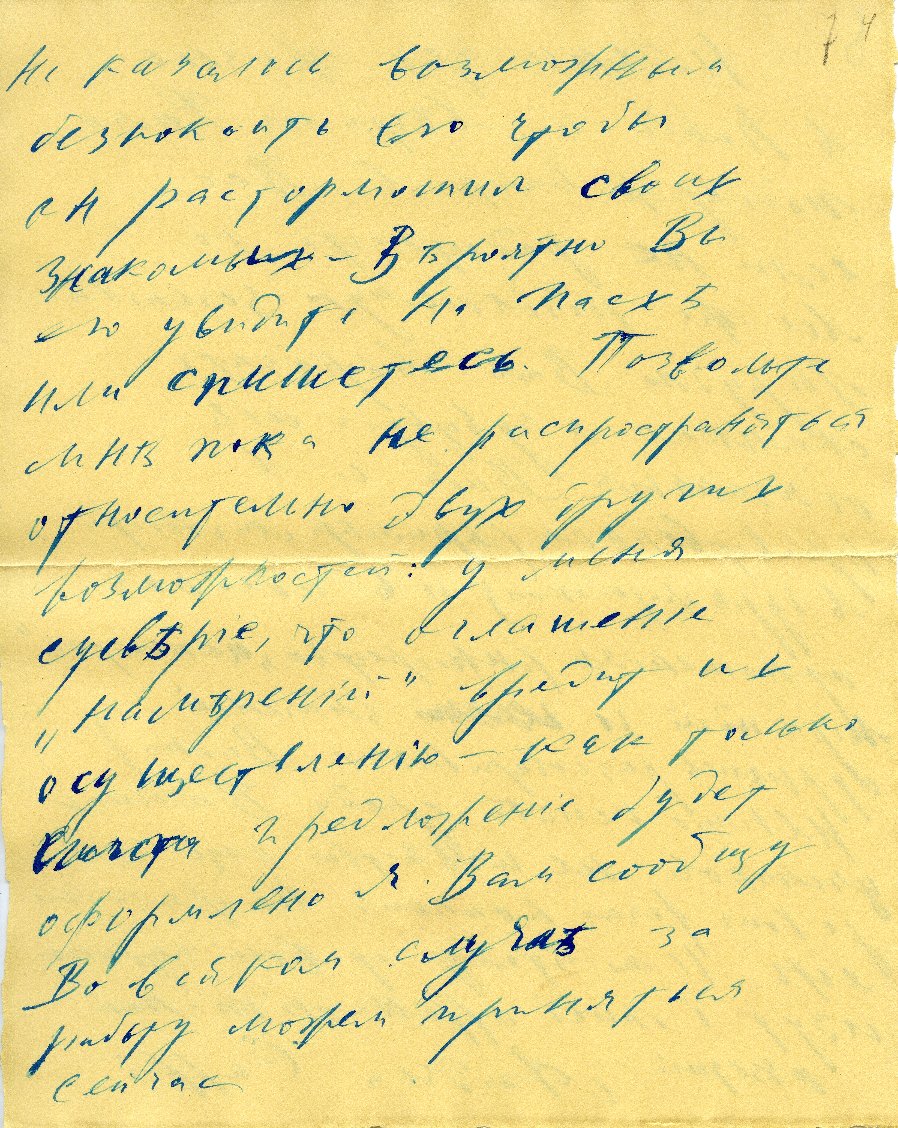 7 4
не казалось возможным
безпокоить его чтобы
он растормошил своих
знакомых – Вѣроятно Вы
его увидите на Пасхѣ
или спишетесь. Позвольте
мнѣ пока не распространяться
относительно двух других
возможностей: у меня
суевѣріе, что оглашение
„намѣреній" вредит их
осуществленію – как только
предложеніе будет
оформлено я Вам сообщу
Во всяком случаѣ за
работу можем приняться
сейчас